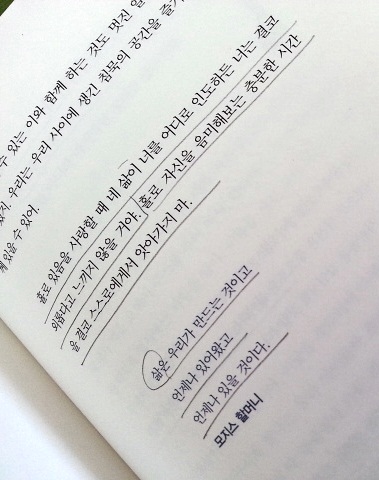 수 있는 이와 함께 하는 것도 멋진 일
있지. 우리는 우리 사이에 생긴 침묵의 공간을 즐기
께 있을 수 있어.
홀로 있음을 사랑할 때 네 삶이 너를 어디로 인도하든 너는 결코
외롭다고 느끼지 않을 거야. 홀로 자신을 음미해보는 충분한 시간
을 결코 스스로에게서 앗아가지 마.
삶은 우리가 만드는 것이고
언제나 있어왔고
언제나 있을 것이다.
모지스 할머니